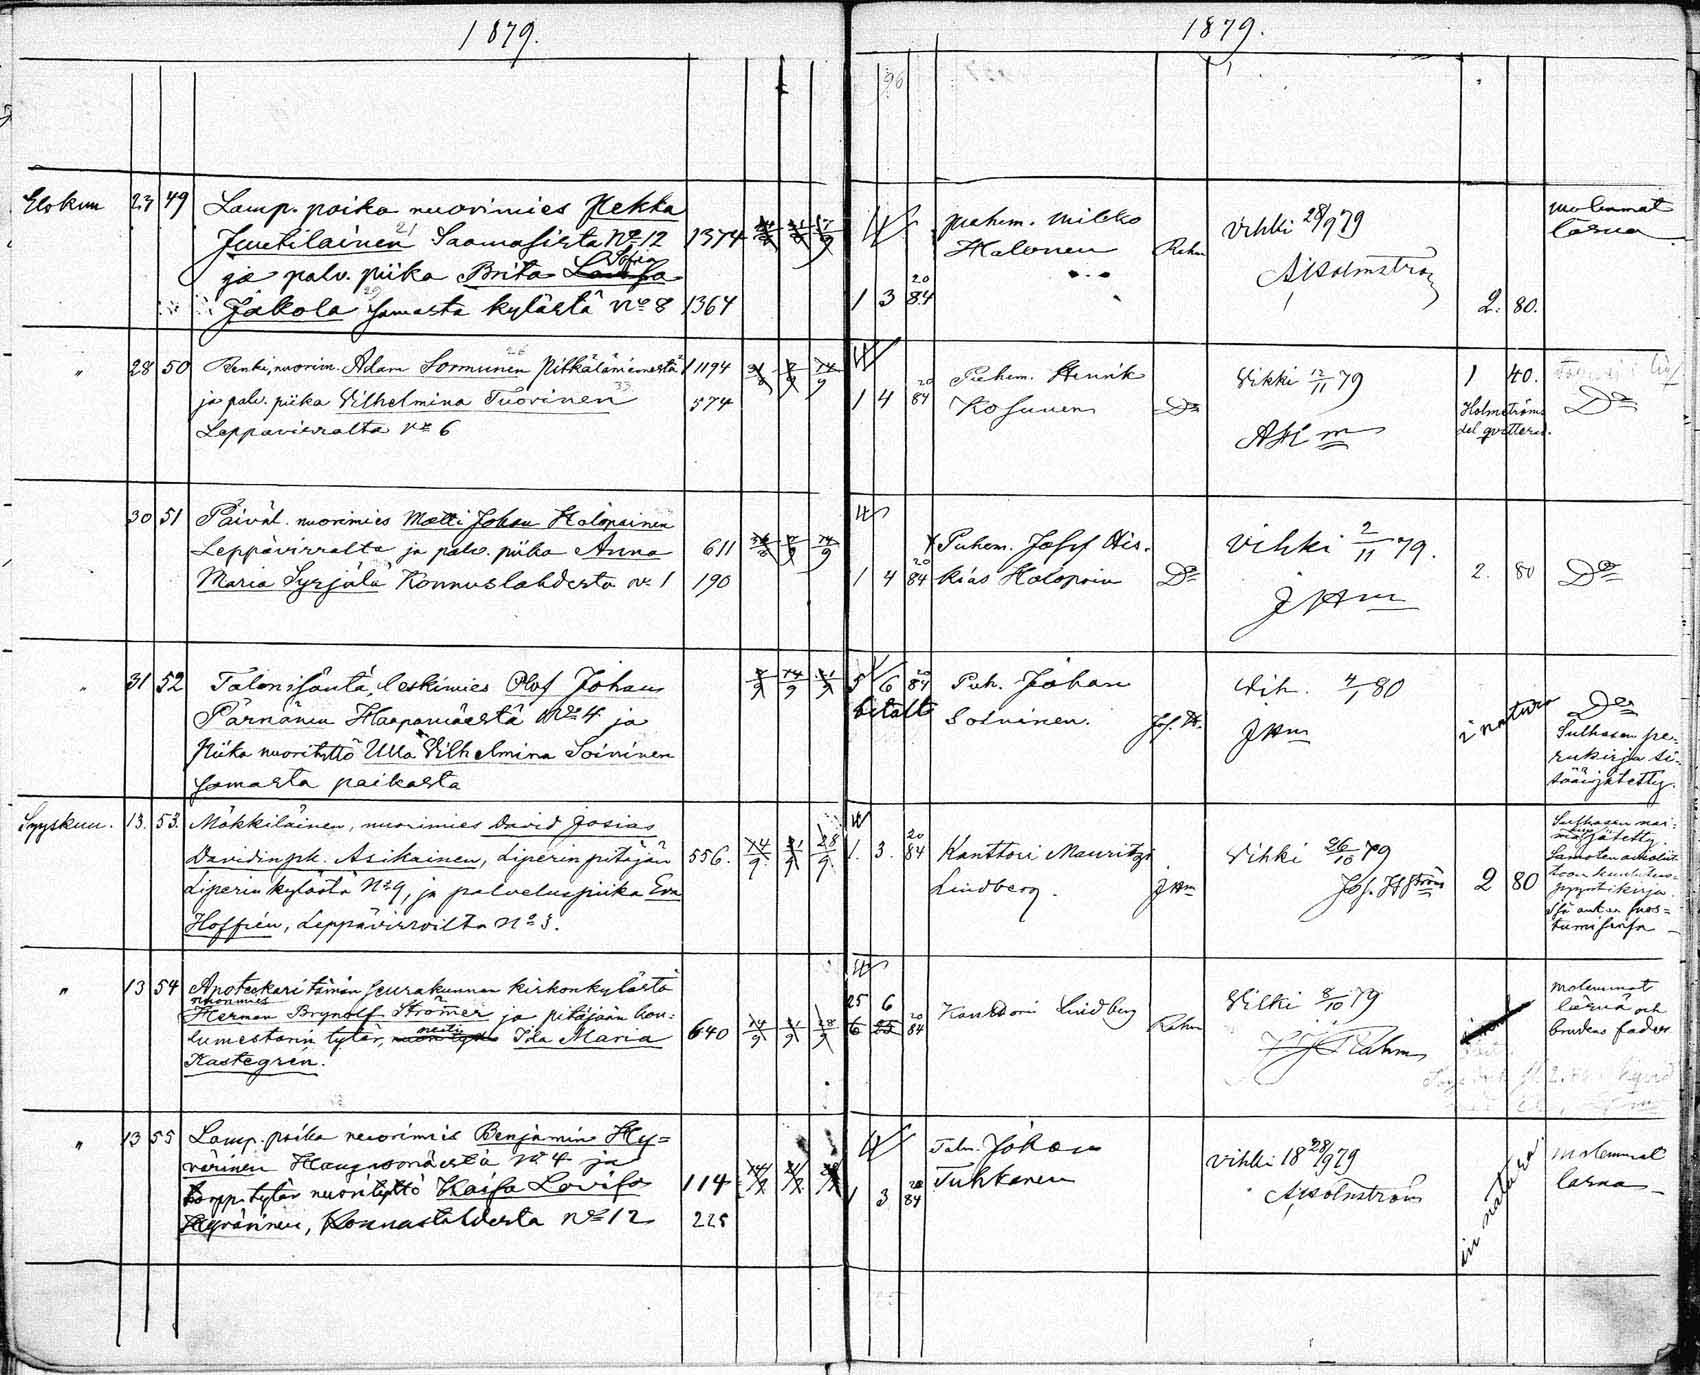 1879.
1879.
Elokuu 23 49 Lamp. poika nuorimies Pekka
Juutilainen 21 Saamasista No 12 1374
ja palv. piika Brita Sofia
Jakola samasta kylästä No 8 1364
1 3 20/84
puhem. Mikko
Halonen
Rahm
Vihki 28/9 79
A Holmström
2. 80.
molemmat
läsnä
" 28 50 Renki, nuorim. Adam Sormunen Pitkälänniemestä 1194
ja palv. piika Vilhelmina Tuovinen 33 574
Leppävirralta No 6
1 4 20/84
Puhem. Henrik
Kosunen
Do
Vihki 12/11 79
AHm
1 40.
Holmströms
del qvitterad.
Do
30 51 Päiväl. nuorimies Matti Johan Halopainen
Leppävirralta ja palv. piika Anna 611
Maria Syrjälä Konnuslahdesta No 1 190
1 4 20/84
Puhem. Josef His-
kias Halopain
Do
Vihki 2/11 79.
JHm
2. 80
Do
" 31 52 Talonisäntä, leskimies Olof Johan
Pärnänen Haapamäestä No 4 ja
Piika nuorityttö Ulla Vilhelmina Soininen
samasta paikasta
7/9 14/9 21/9
5 6 20/84
betalt
Puh. Johan
Soininen.
Jos. H.
Vih. 4/1 80
JHm
in natura
Do
Sulhasen pe-
rukirja si-
säänjätetty.
Syyskuu. 13. 53. Mökkiläinen, nuorimies David Josias
Davidinpk. Asikainen, Liperin pitäjän 556.
Liperin kylästä No 9, ja palveluspiika Eva
Hoffrén, Leppävirroilta No 3.
14/9. 21/9 28/9.
1. 3. 20/84
Kanttori Mauritz
Lindberg.
JHm
Vihki 26/10 79
Jos. Hström
2 80
Sulhasen
jätetty.
" 13 54 Apoteekari tämän seurakunnan kirkonkylästä
nuorimies
Herman Brynolf Strömer ja pitäjään kou-
lumestarin tytär, neiti Ida Maria 640
Kastegrén.
14/9 21/9 28/9
25 6
6 25 20/84
Kanttori Lindberg
Rahm
Vihki 8/10 79
Rahm
molemmat
läsnä och
brudens fader
" 13 55 Lamp. poika nuorimies Benjamin Hy-
värinen Haapamäestä No 4 ja
torppi tytär nuorityttö Kaisa Lovisa 114
Hyvärinen, Konnuslahdesta No 12 225
1 3 20/84
Talm. Johan
Tukkanen
Vihki 18 28/9 79
A Holmström
in natura
molemmat
läsnä